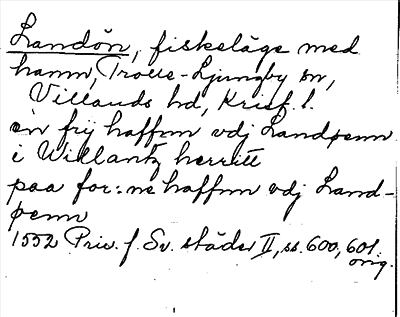 Landön, fiskeläge med
hamn, Trolle-Ljungby sn,
Villands hd, Krist. l.
en frÿ haffnn vdj Landøenn
i Willantz herritt
paa for:ne haffnn vdj Land-
øenn
1552 Priv. f. Sv. städer II, ss. 600, 601.
orig.